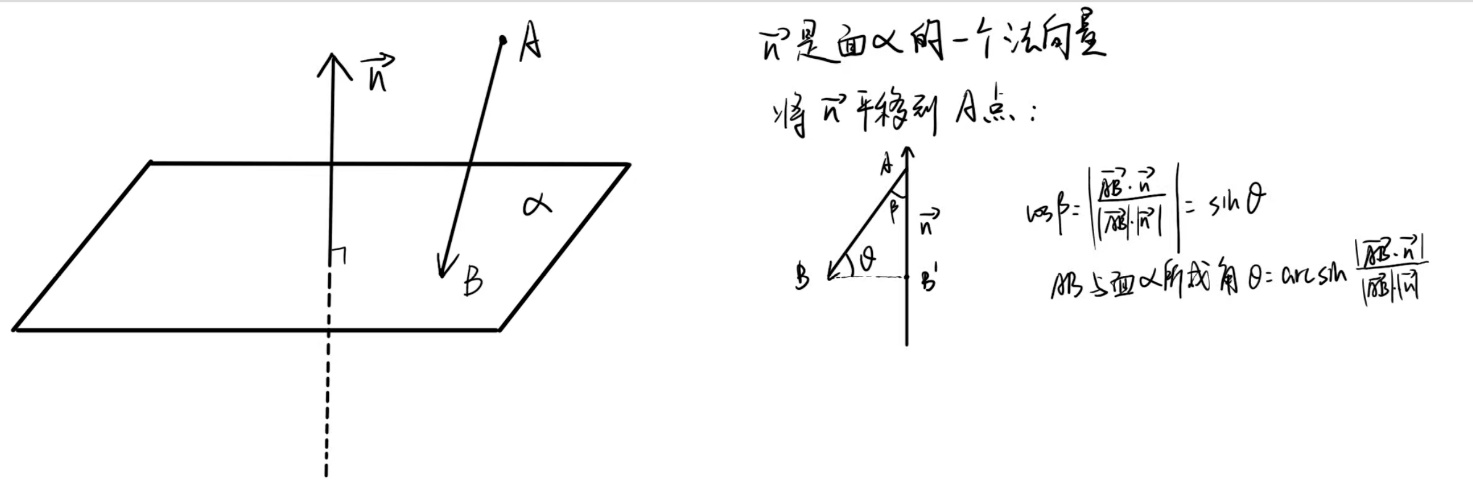 n⃗
A
α
B
n⃗是面α的一个法向量
将n⃗平移到A点：
A
β
n⃗
θ
B
B'
cosβ=|AB⃗·n⃗/(|AB⃗|·|n⃗|)|=sinθ
AB与面α所成角θ=arcsin |AB⃗·n⃗|/(|AB⃗||n⃗|)